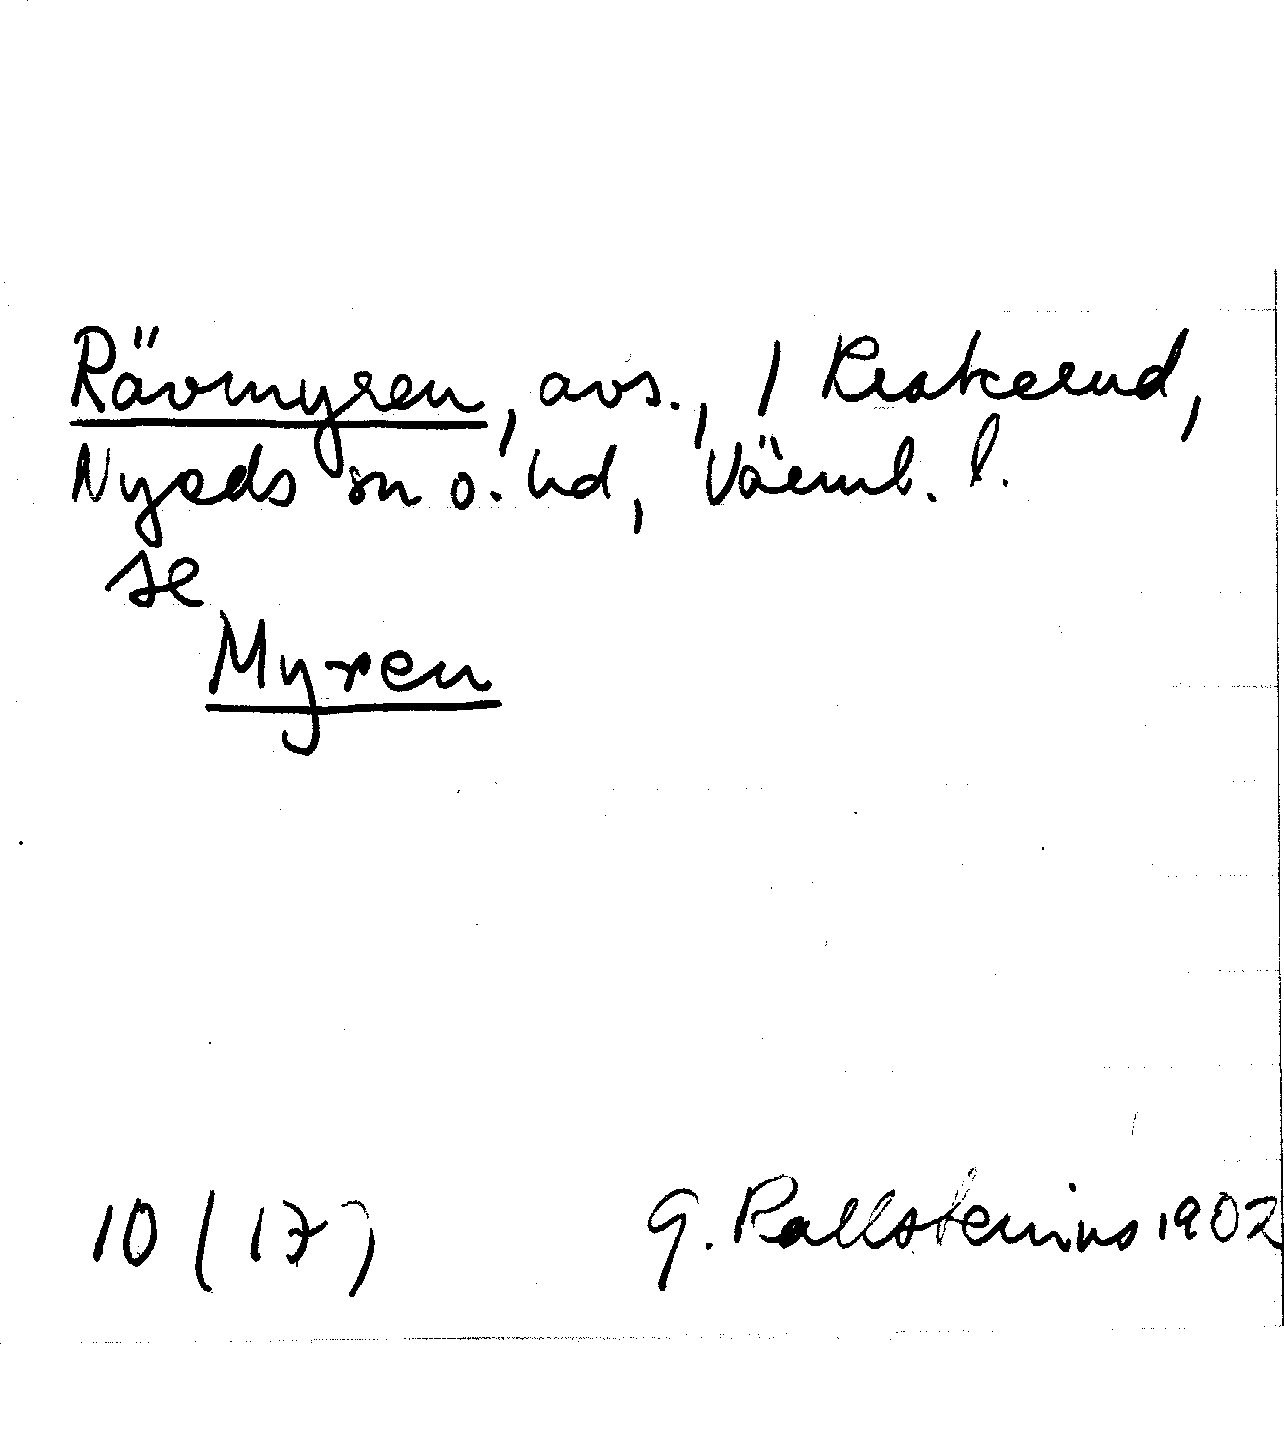 Rävmyren, avs., / Rratkerud,
Nyeds sn o. hd, Värml. l.
se
Myren
10 (17)
G. Kallstenius 1902